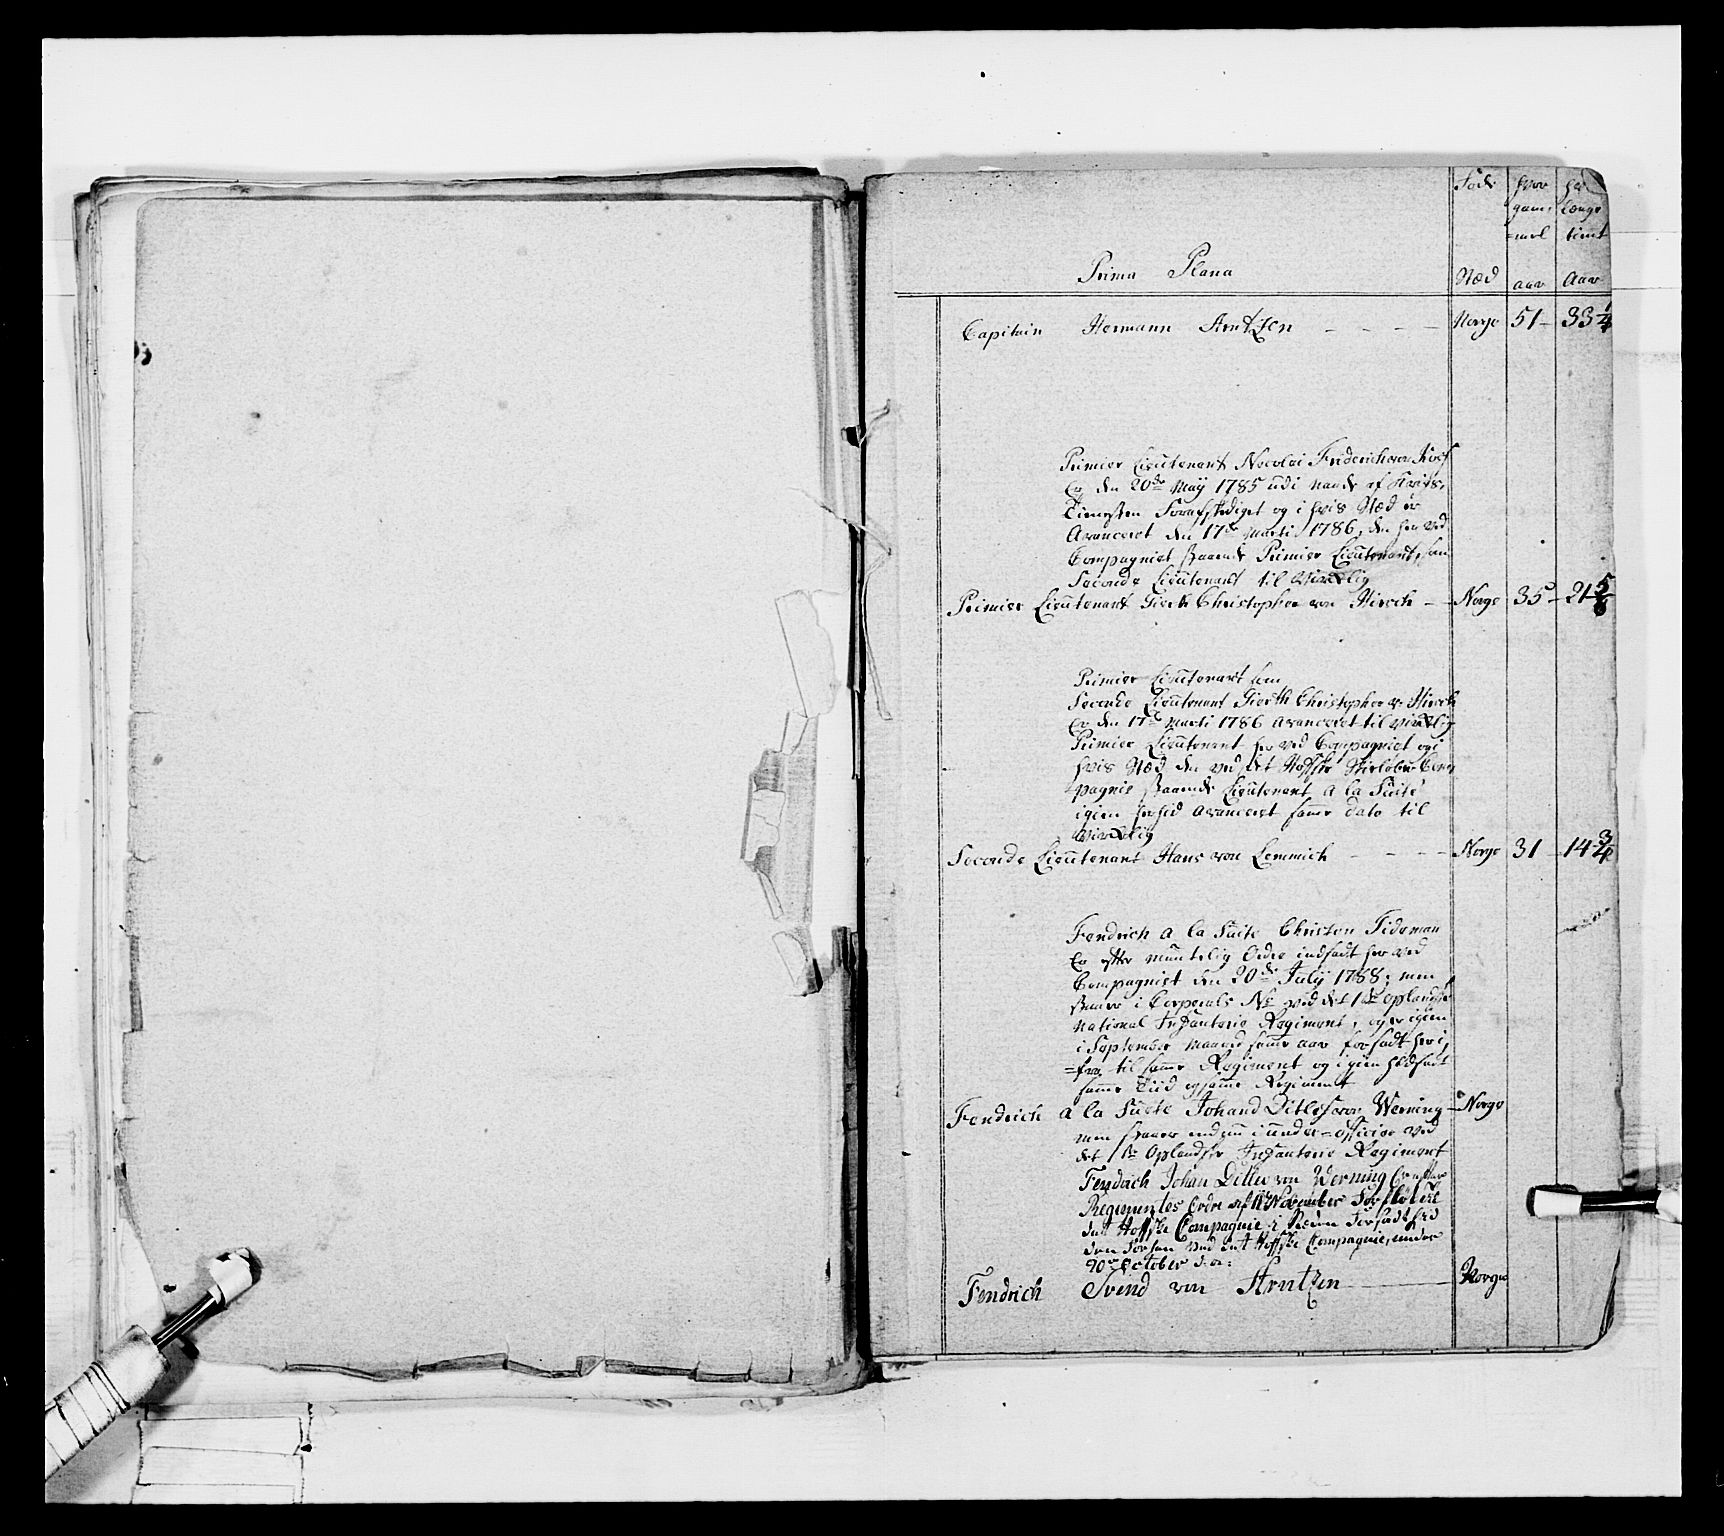 Føde hvor hv
gam længe
=mel tient
Prima Plana Stæd aar Aar
Capitain Hermann Arntzen - - - - Norge 51 - 33 1/4
Premier Lieutenant Nicolai Friderich von
Er den 20de May 1785 udi Naade af Krigs,
Tienesten Forafskediget og i hvis Stæd er
Avanceret den 17de Marti 1786, den her ved
Compagniet staaende Premier Lieutenant, som
Seconde Lieutenant til virkelig
Premier Lieutenant Gierth Christopher von Hirsch - Norge 35 - 21 5/8
Premier Lieutenant som
Seconde Lieutenant Gierth Christopher v. Hirsch
Er den 17de Marti 1786 Avanceret til virkelig
Premier Lieutenant her ved Compagniet og i
hvis Stæd den ved det Hoffske Skieløber Com
pagnie staaende Lieutenant a la Suite
igien herhid avanceret samme dato til
virkelig
Seconde Lieutenant Hans von Lemmich - - - - Norge 31 - 14 3/4
Fendrich a la Suite Christen Tideman
Er efter mundtlig Ordre indsadt her ved
Compagniet den 20de July 1788; men
staaer i Corporals No ved det 1ste Oplandske
National Infanterie Regiment, og er igien
i September Maaned samme aar forsadt her i,
=fra til samme Regiment og igien
samme Tiid og samme Regiment
Fendrich a la Suite Johan Ditlef von Werning - Norge
men staaer endnu i under=officier ved
det 1te Oplandske Infanterie Regiment
Fendrich Johan Ditlev von Werning Er efter
Regimentes Ordre af 11te November Forfløttet
det Hoffske Compagnie i Steden Forsadt hid
den Forhen ved det Hoffske Compagnie, under
20de October d: a:
Fendrich Svend von Arntzen Norge